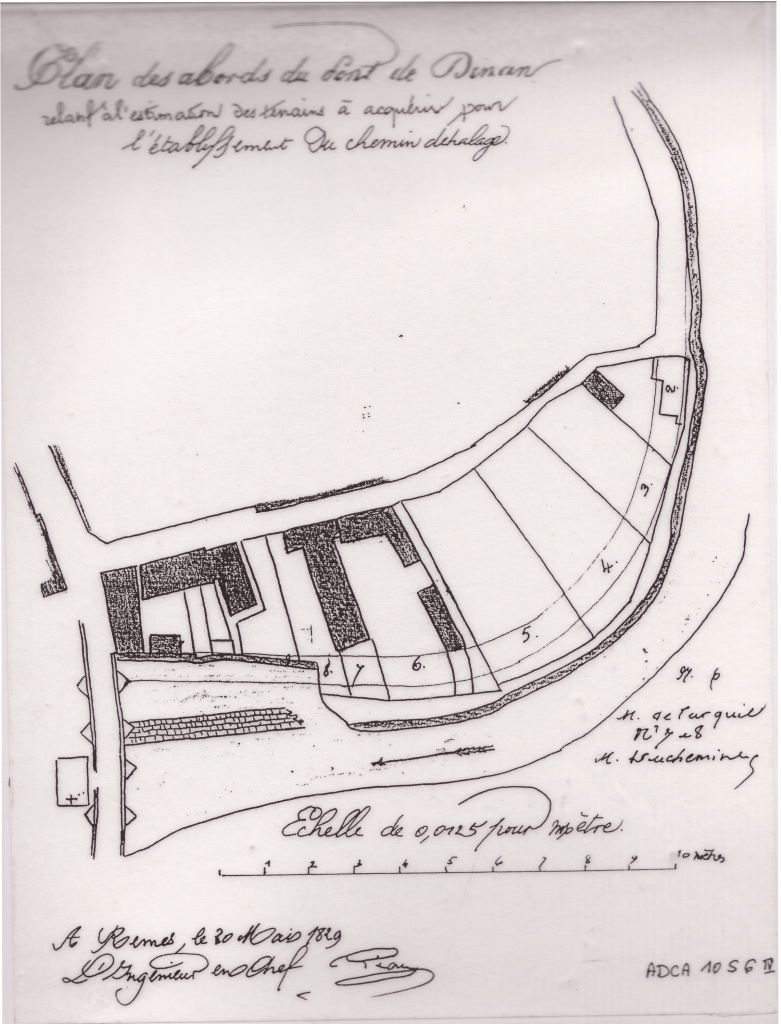 Plan des abords du Pont de Dinan
relatif à l'estimation des terrains à acquérir pour
l'établissement Du chemin de halage.
2.
3.
4.
5.
6.
7
8.
1
N. 6
M. de
N° 7 et 8
M. Duchemin
Echelle de 0,0125 pour mètre.
1 2 3 4 5 6 7 8 9 10 mètres
A Rennes, le 30 Mais 1829
L'Ingénieur en Chef
ADCA 10 S 6 IV